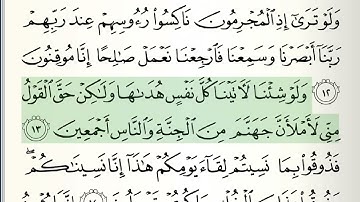 وَلَوْ تَرَىٰٓ إِذِ ٱلْمُجْرِمُونَ نَاكِسُوا۟ رُءُوسِهِمْ عِندَ رَبِّهِمْ
رَبَّنَآ أَبْصَرْنَا وَسَمِعْنَا فَٱرْجِعْنَا نَعْمَلْ صَـٰلِحًا إِنَّا مُوقِنُونَ
١٢ وَلَوْ شِئْنَا لَـَٔاتَيْنَا كُلَّ نَفْسٍ هُدَىٰهَا وَلَـٰكِنْ حَقَّ ٱلْقَوْلُ
مِنِّى لَأَمْلَأَنَّ جَهَنَّمَ مِنَ ٱلْجِنَّةِ وَٱلنَّاسِ أَجْمَعِينَ ١٣
فَذُوقُوا۟ بِمَا نَسِيتُمْ لِقَآءَ يَوْمِكُمْ هَـٰذَآ إِنَّا نَسِينَـٰكُمْ ۖ